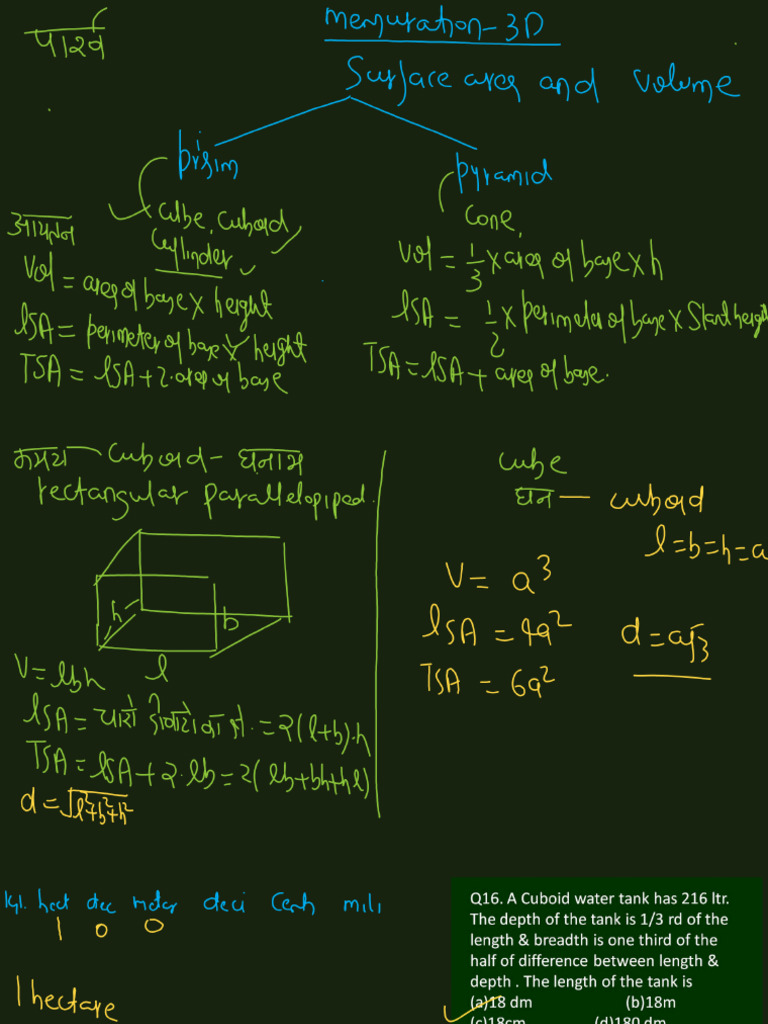 पार्श्व
Mensuration-3D
Surface area and volume
prism
pyramid
cube, cuboid
cylinder
cone,
आयतन
Vol = area of base × height
LSA = perimeter of base × height
TSA = LSA + 2·area of base
Vol = 1/3 × area of base × h
LSA = 1/2 × perimeter of base × Slant height
TSA = LSA + area of base.
cuboid - घनाभ
rectangular parallelopiped.
h
b
l
V = lbh
LSA = चारों = 2(l+b)·h
TSA = LSA + 2·lb = 2(lb+bh+hl)
d = √l²+b²+h²
cube
घन — cuboid
l=b=h=a
V = a³
LSA = 4a²
d = a√3
TSA = 6a²
hect dec meter deci centi mili
1 0 0
1 hectare
Q16. A Cuboid water tank has 216 ltr.
The depth of the tank is 1/3 rd of the
length & breadth is one third of the
half of difference between length &
depth . The length of the tank is
(a)18 dm (b)18m
(c)18cm (d)180 dm